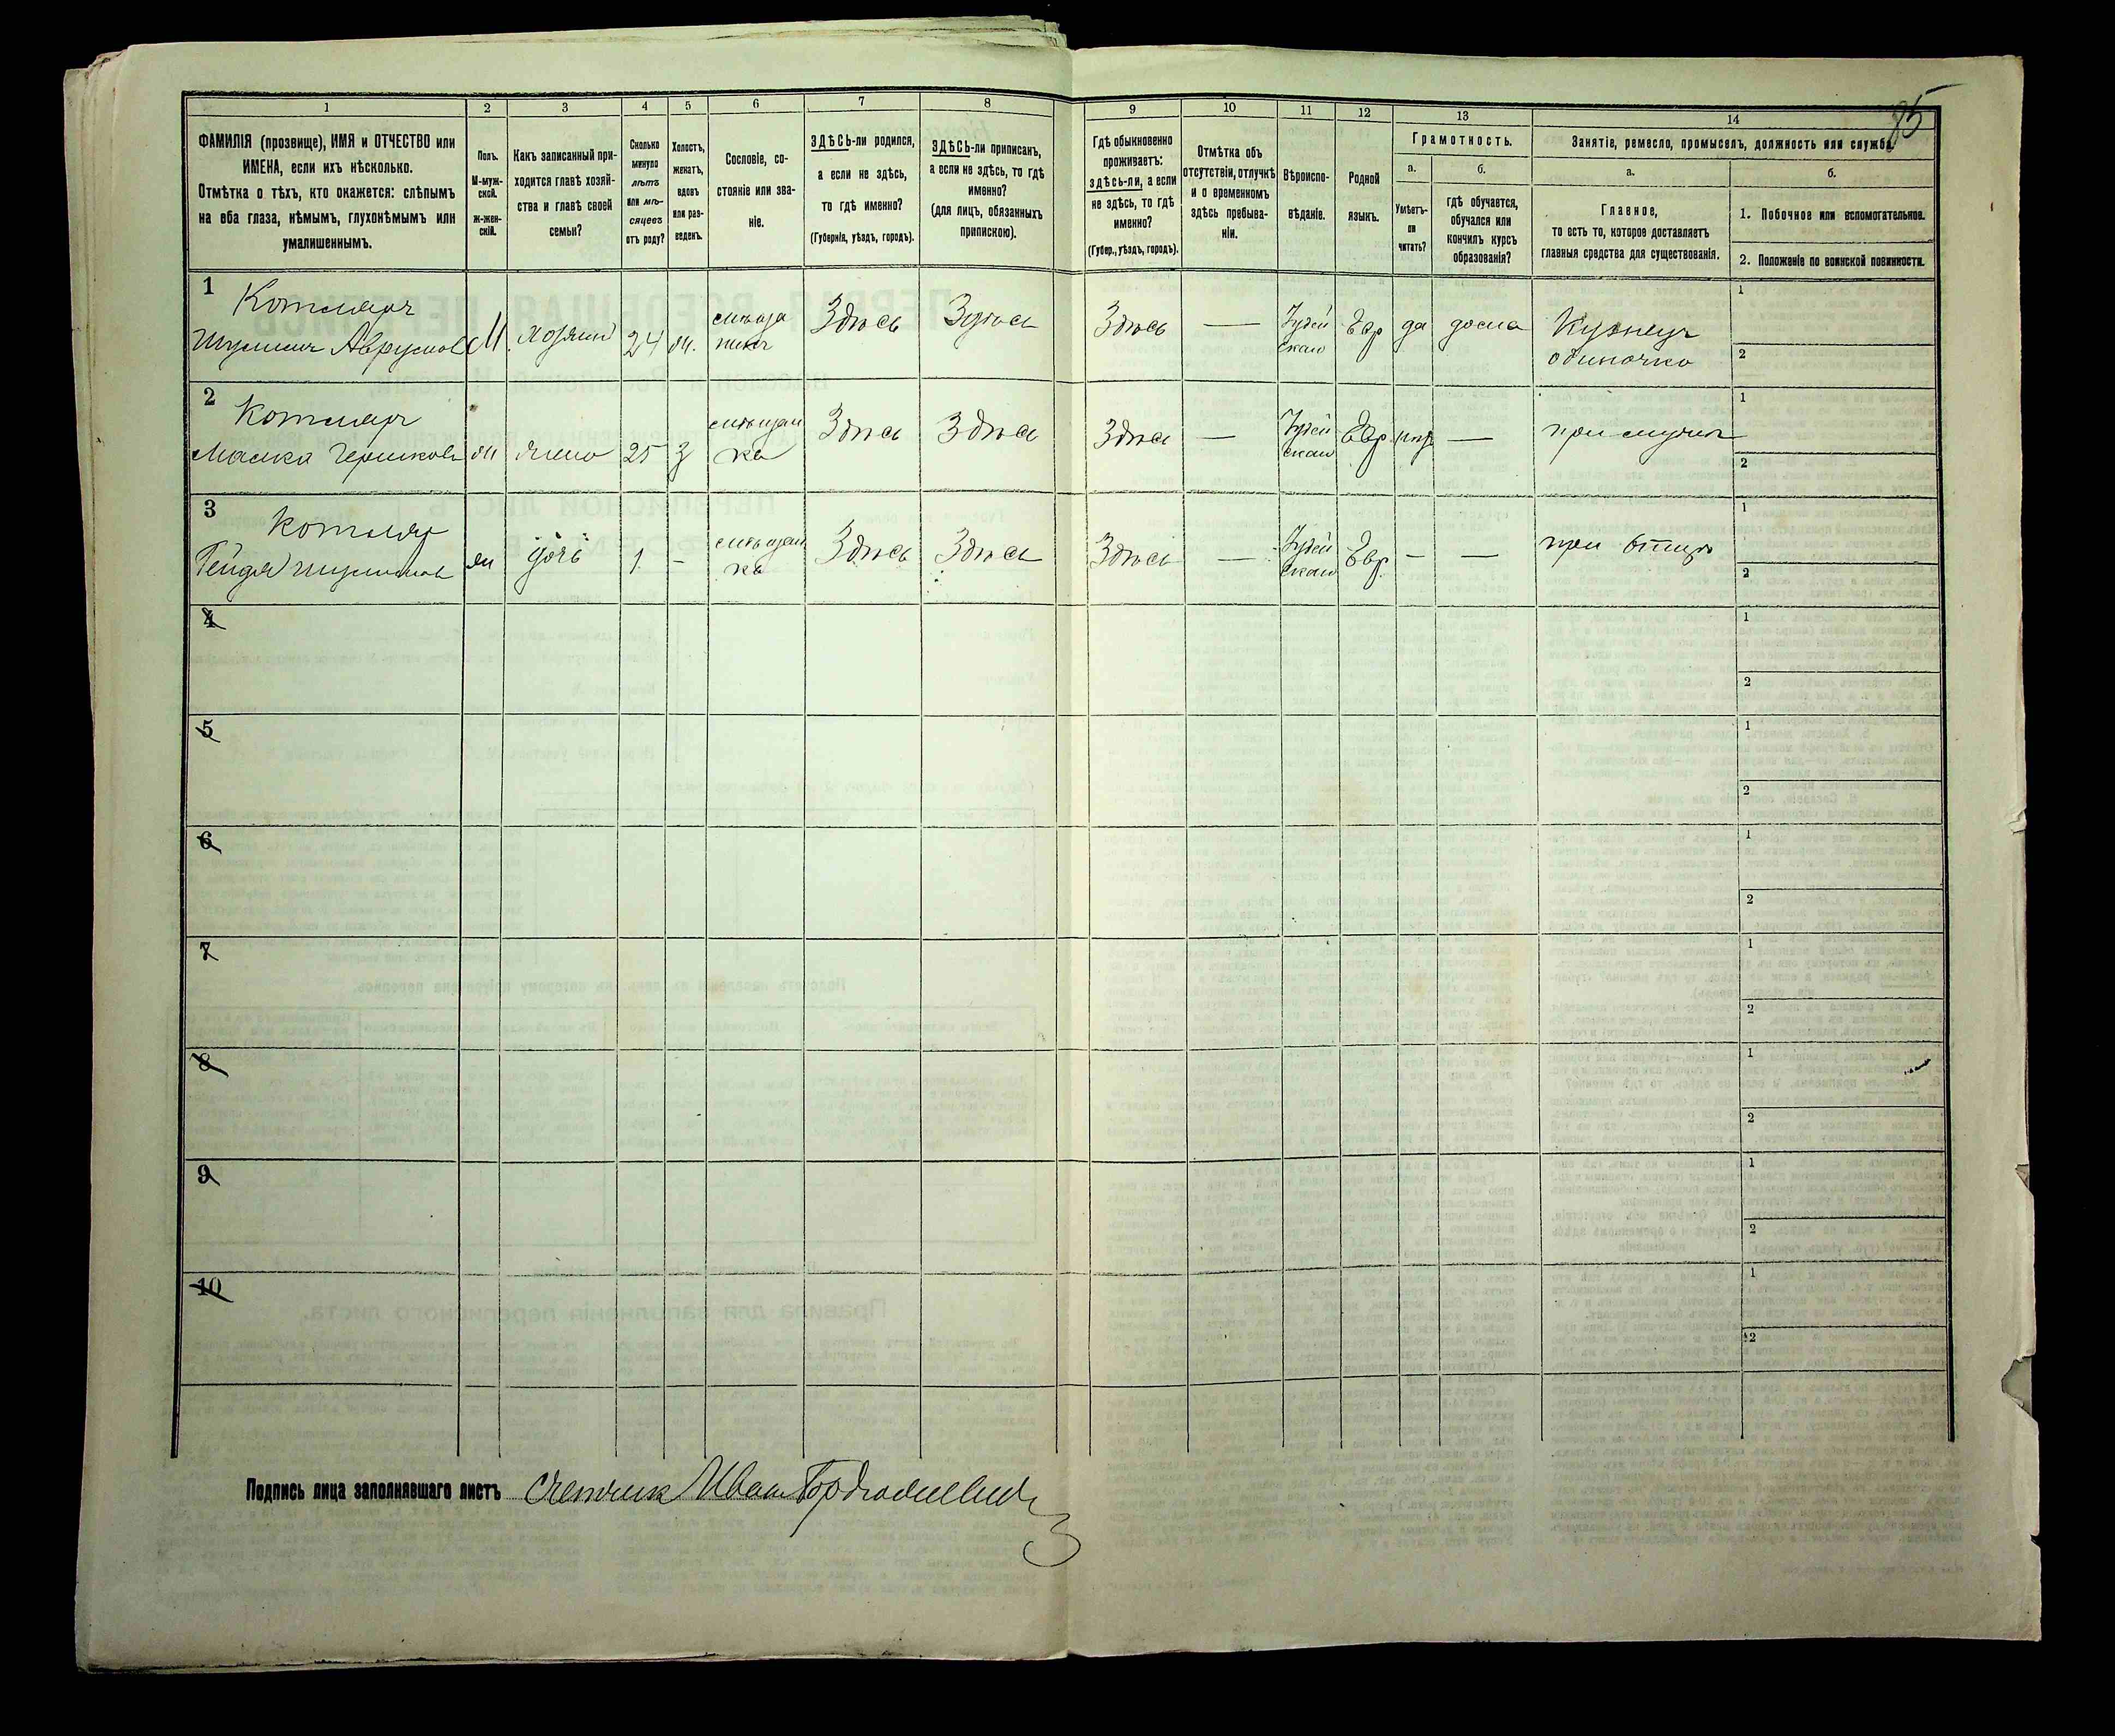 85
1 2 3 4 5 6 7 8 9 10 11 12 13 14
ФАМИЛІЯ (прозвище), ИМЯ и ОТЧЕСТВО или
ИМЕНА, если ихъ нѣсколько.
Отмѣтка о тѣхъ, кто окажется: слѣпымъ
на оба глаза, нѣмымъ, глухонѣмымъ или
умалишеннымъ.
Полъ.
М-муж-
ской.
ж-жен-
скій.
Какъ записанный при-
ходится главѣ хозяй-
ства и главѣ своей
семьи?
Сколько
минуло
лѣтъ
или мѣ-
сяцевъ
отъ роду?
Холостъ,
женатъ,
вдовъ
или раз-
веденъ.
Сословіе, со-
стояніе или зва-
ніе.
ЗДѢСЬ-ли родился,
а если не здѣсь,
то гдѣ именно?
(Губернія, уѣздъ, городъ).
ЗДѢСЬ-ли приписанъ,
а если не здѣсь, то гдѣ
именно?
(для лицъ, обязанныхъ
припискою).
Гдѣ обыкновенно
проживаетъ:
здѣсь-ли, а если
не здѣсь, то гдѣ
именно?
(Губер., уѣздъ, городъ).
Отмѣтка объ
отсутствіи, отлучкѣ
и о временномъ
здѣсь пребыва-
ніи.
Вѣроиспо-
вѣданіе.
Родной
языкъ.
Грамотность.
а.
Умѣетъ-
ли
читать?
б.
гдѣ обучается,
обучался или
кончилъ курсъ
образованія?
Занятіе, ремесло, промыселъ, должность или служба.
а.
Главное,
то есть то, которое доставляетъ
главныя средства для существованія.
б.
1. Побочное или вспомогательное.
2. Положеніе по воинской повинности.
1
Котляръ
М хозяин 24 Здѣсь Здѣсь Здѣсь — Іудей
скаго
Евр да дома Кузнецъ
одиночка
1
2
2
Котляръ
Малка жена 25 з мѣщан
ка
Здѣсь Здѣсь Здѣсь — Іудей
скаго
Евр — при мужѣ
1
2
3
Котляр
дочь 1 - мѣщан
ка
Здѣсь Здѣсь Здѣсь — Іудей
скаго
Евр — — при отцѣ
1
2
4
1
2
5
1
2
6
1
2
7
1
2
8
1
2
9
1
2
10
1
2
Подпись лица заполнявшаго листъ счетчик Иван